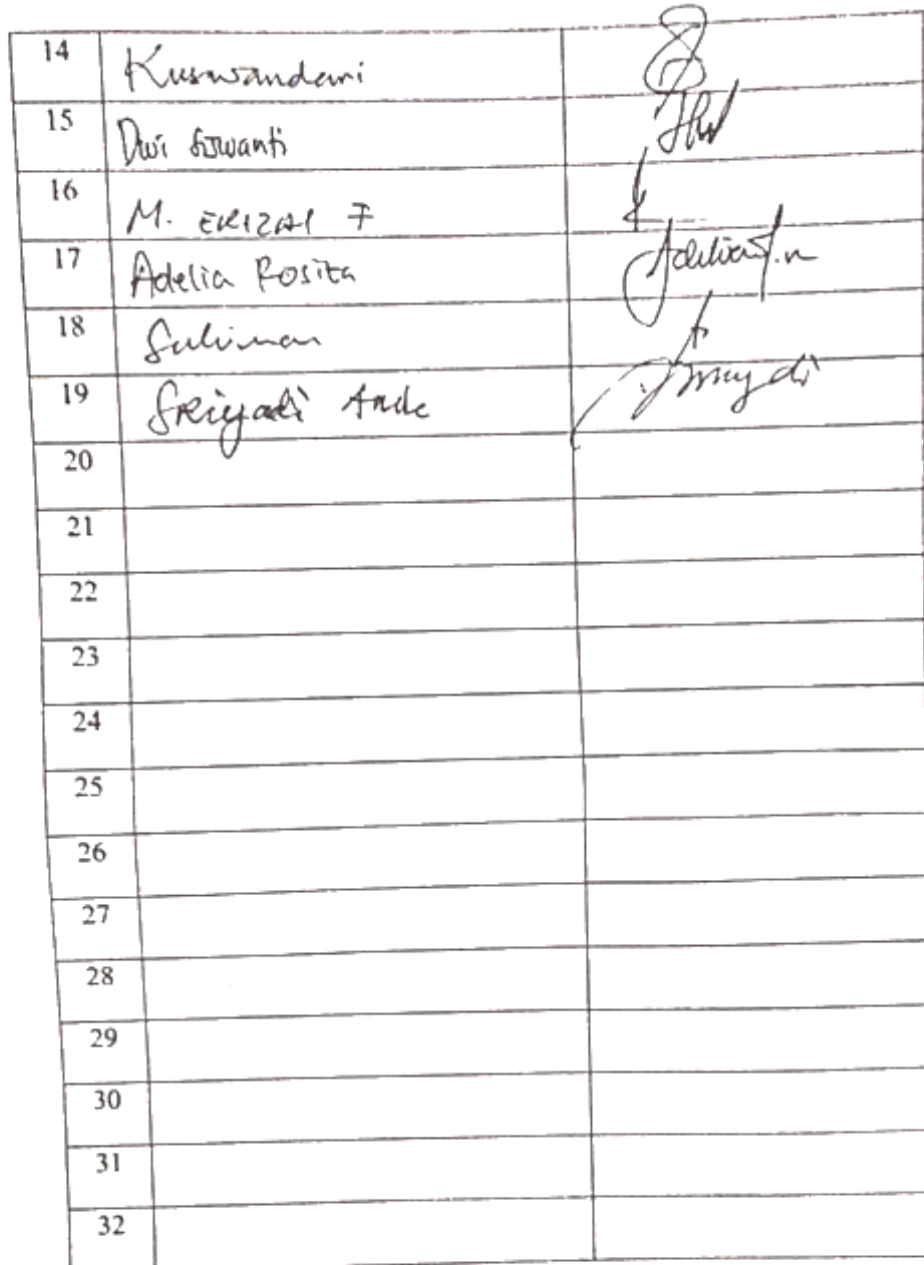 14 Kuswandani
15 Dwi Siswanti
16 M. ERIZAL F
17 Adelia Rosita
18 Suliman
19 Sriyadi Ande
20
21
22
23
24
25
26
27
28
29
30
31
32